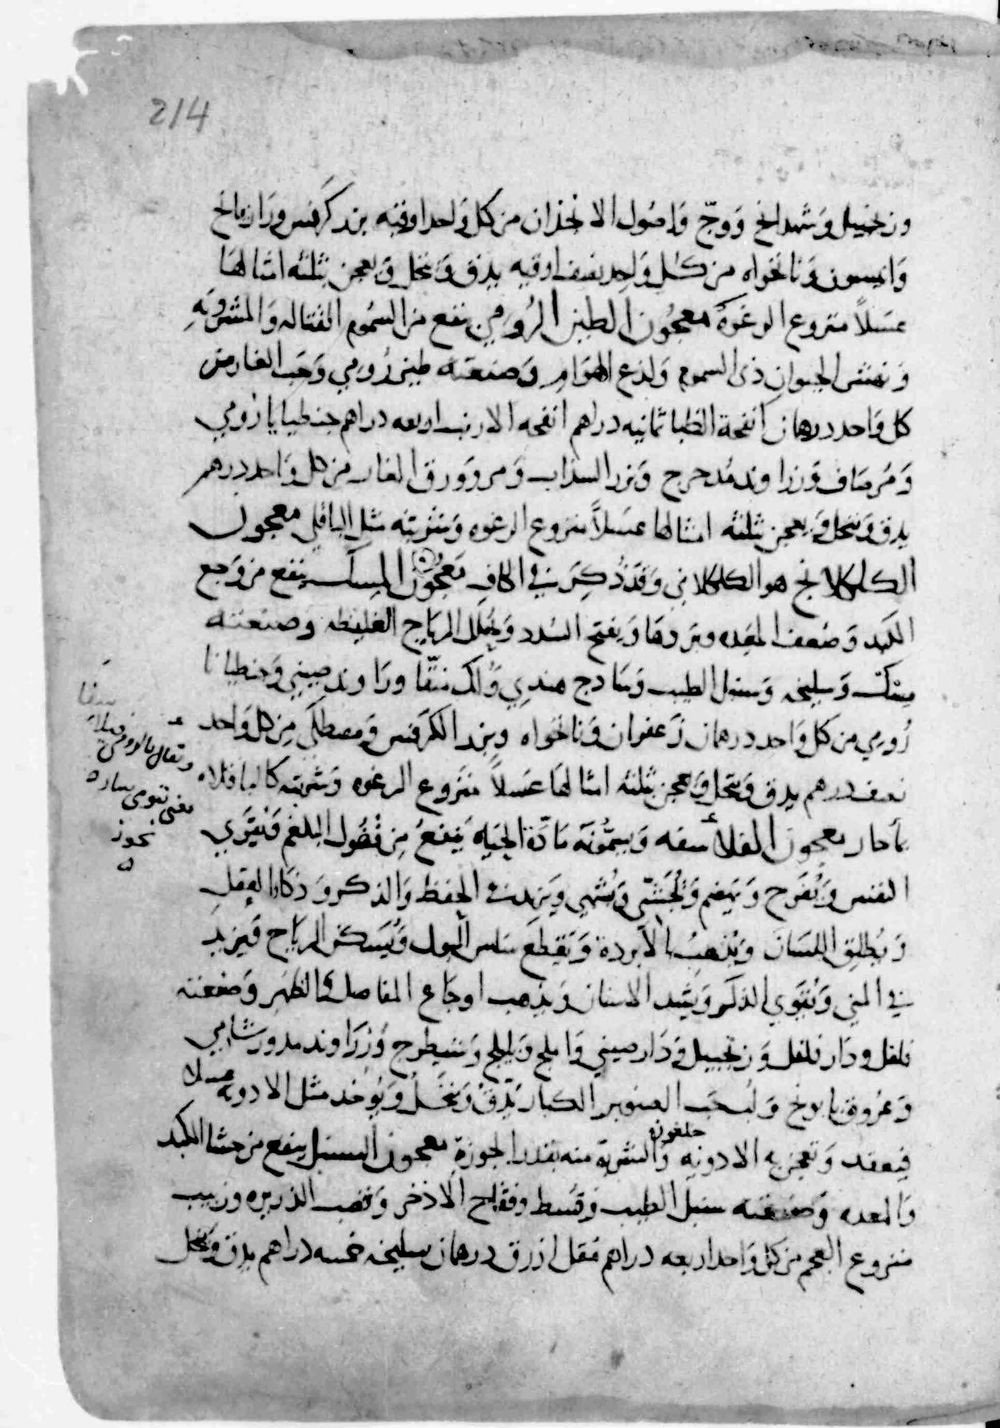 214
وزنجبيل وشهدانج ووج واصول الانجذان من كل واحد اوقيه بزر كرفس ورازيانج
وانيسون ونانخواه من كل واحد نصف اوقيه يدق وينخل ويعجن بثلثه امثالها
عسلاً منزوع الرغوة معجون الطين الرومي ينفع من السموم القتاله والمشروبه
ونهش الحيوان ذي السموم ولدغ الهوام وصنعته طين رومي وحب الغار من
كل واحد درهمان انفحة الظبا ثمانيه دراهم انفحه الارنب اربعه دراهم جنطيانا رومي
ومر صاف وزراوند مدحرج وبزر السذاب ومرو وورق الغار من كل واحد درهم
يدق وينخل ويعجن بثلثه امثالها عسلاً منزوع الرغوه وشربته مثل الباقلى معجون
الكلكلانج هو الكلكلاني وقد ذكر في الكاف معجون المسك ينفع من وجع
الكبد وضعف المعده وبردها ويفتح السدد ويحلل الرياح الغليظه وصنعته
مسك وسليخه وسنبل الطيب وساذج هندي ولك منقا وراوند صيني وجنطيانا
رومي من كل واحد درهمان زعفران ونانخواه وبزر الكرفس ومصطكى من كل واحد
نصف درهم يدق وينخل ويعجن بثلثه امثالها عسلاً منزوع الرغوه وشربته كالباقلاه
بماحار معجون الفلاسفه ويسمونه مادة الحياه ينفع من فضول البلغم ويقوي
النفس ويفرح ويهضم ويجشي ويشهي ويزيد في الحفظ والذكر وذكاء العقل
ويطلق اللسان ويذهب الابردة ويقطع سلس البول ويسكن الرياح ويزيد
في المني ويقوي الذكر ويشد الاسنان ويذهب اوجاع المفاصل والظهر وصنعته
فلفل ودارفلفل وزنجبيل ودارصيني واملج وبليلج وشيطرج وزراوند مدور شامي
وعروق بابونج ولب حب الصنوبر الكبار يدق وينخل ويوخذ مثل الادويه عسلا
فيعقد ويعجن به الادويه والشربة منه بقدر الجوزة معجون السنبل ينفع من جشا الكبد
والمعده وصنعته سنبل الطيب وقسط وفقاح الاذخر وقصب الذريره وزبيب
منزوع العجم من كل واحد اربعه دراهم مقل ازرق درهمان سليخه خمسه دراهم يدق وينخل